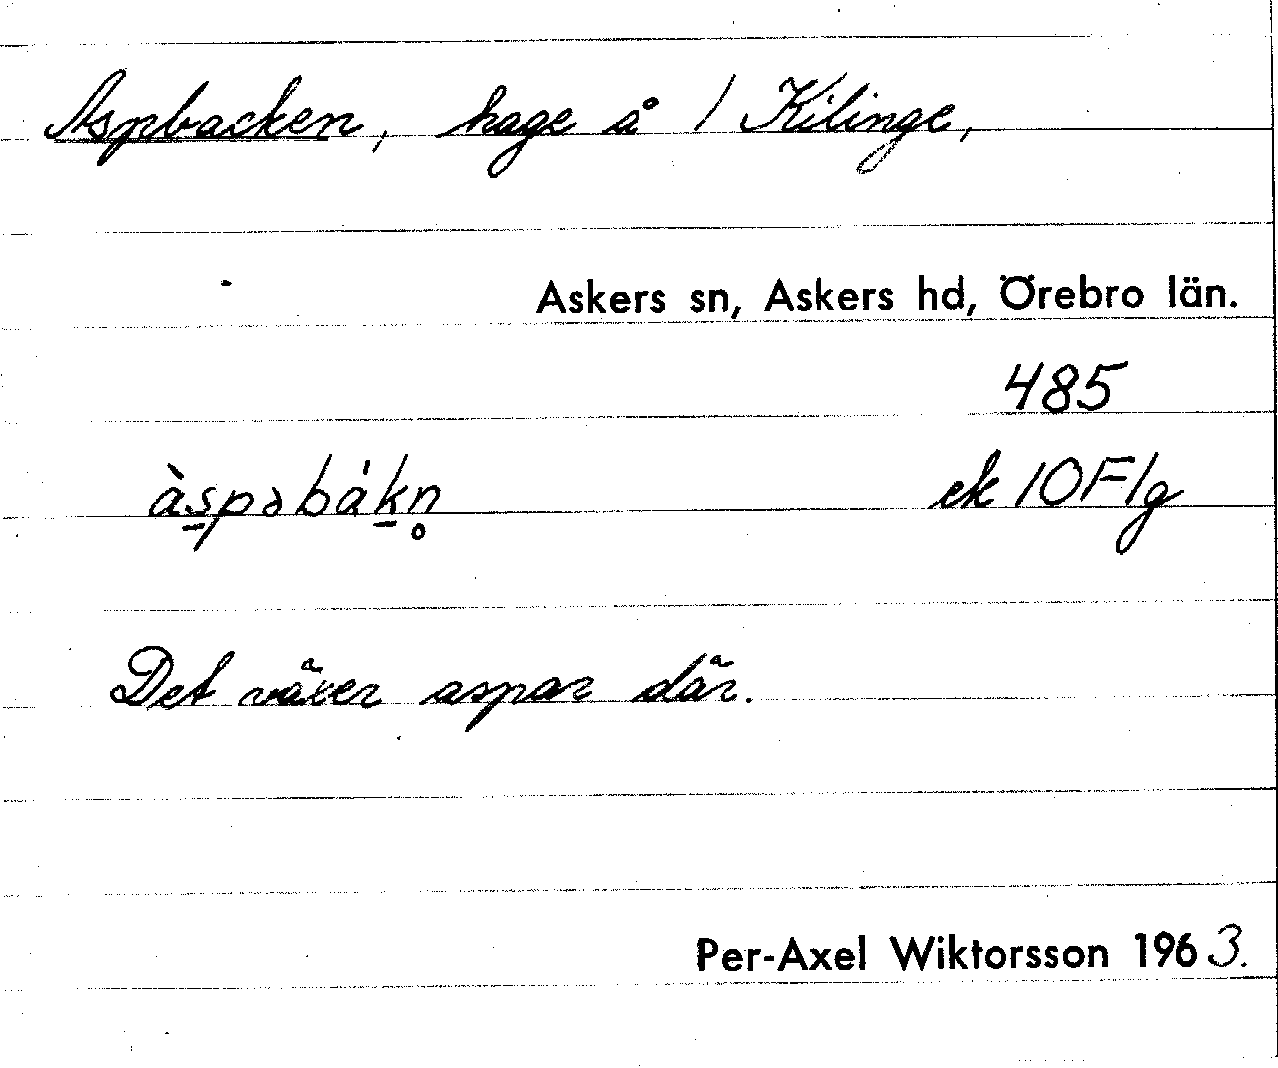 Aspbacken, hage å 1 Kilinge,
Askers sn, Askers hd, Örebro län.
485
às̱pəbák̠n̥ ek 10F1g
Det växer aspar där.
Per-Axel Wiktorsson 1963.